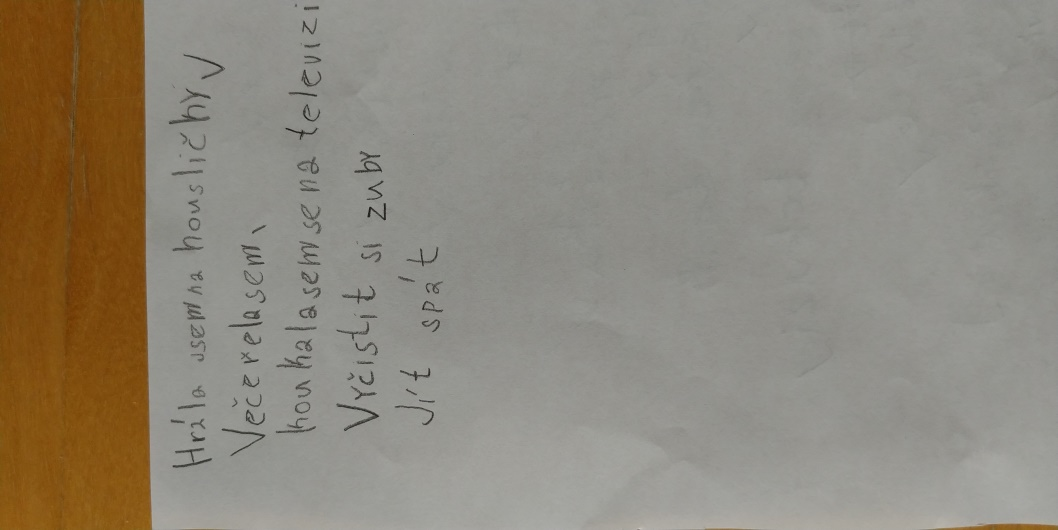 Hrála jsem na housličky
Večeřelasem
koukalasemsena televizi
Vyčistit si zuby
Jít spát